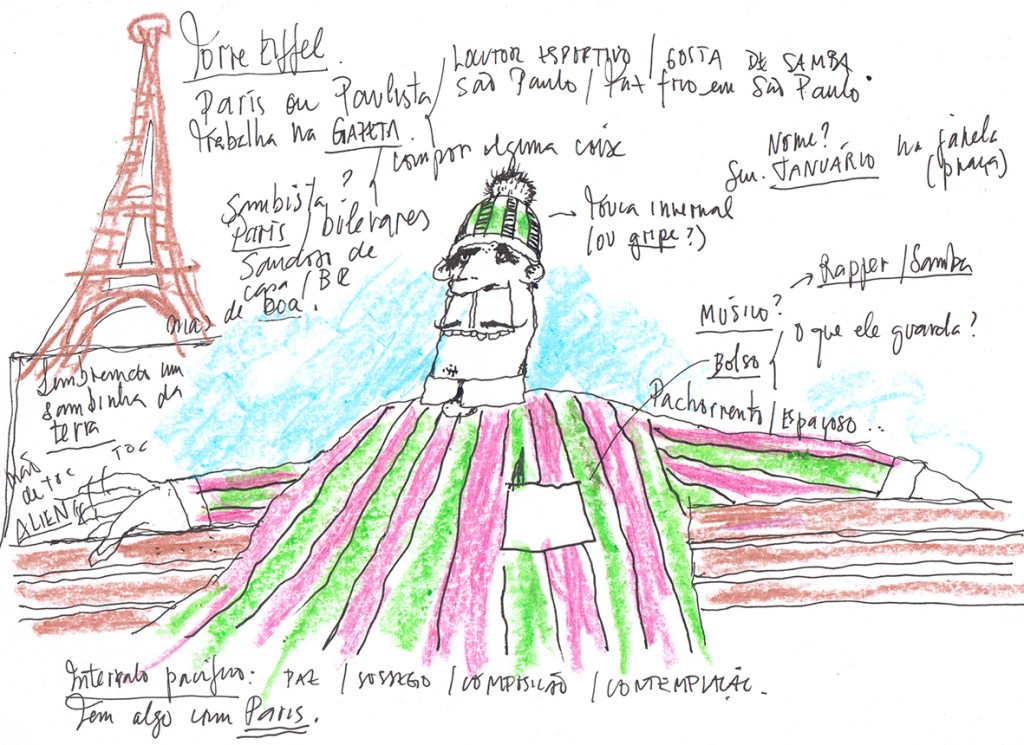 Torre Eiffel.
Paris ou Paulista/
trabalha na GAZETA.
LOCUTOR ESPORTIVO / GOSTA DE SAMBA
São Paulo / Faz frio em São Paulo.
compor alguma coisa
Nome?
Seu. JANUÁRIO na janela
(praça)
Sambista?
Paris / bulevares
Saudoso de
casa / BR
mas de boa.
→ Touca invernal
(ou gripe?)
→ Rapper / Samba
MÚSICO?
O que ele guarda?
Bolso
Pachorrento / Espaçoso..
Lembremos um
sambinha da
terra
TOC
não
de toc
ALIEN
Intervalo pacífico: PAZ / SOSSEGO / COMPOSICÃO / CONTEMPLAÇÃO.
Tem algo com Paris.